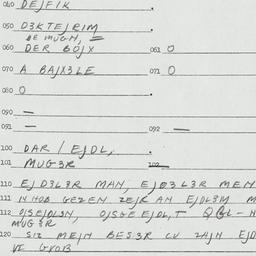 040 DEJFIK .
050 D3KTEJRIM
DE MUGN, =
060 DER BOJX 061 O
070 A BAJX3LE 071 O
080 O
090 —
091 — 092 —
100 DAR / EJDL,
101 MUG3R 102
110 EJD3L3R MAN, EJD3L3R MEN
111 IN HOB GEZEN ZEJR AN EJDL3M M
112 OJSEJDLSN, OJSGEEJDL,T
MUG3R
120 S'IZ MEJN BES3R CU ZAJN EJD
VI GROB